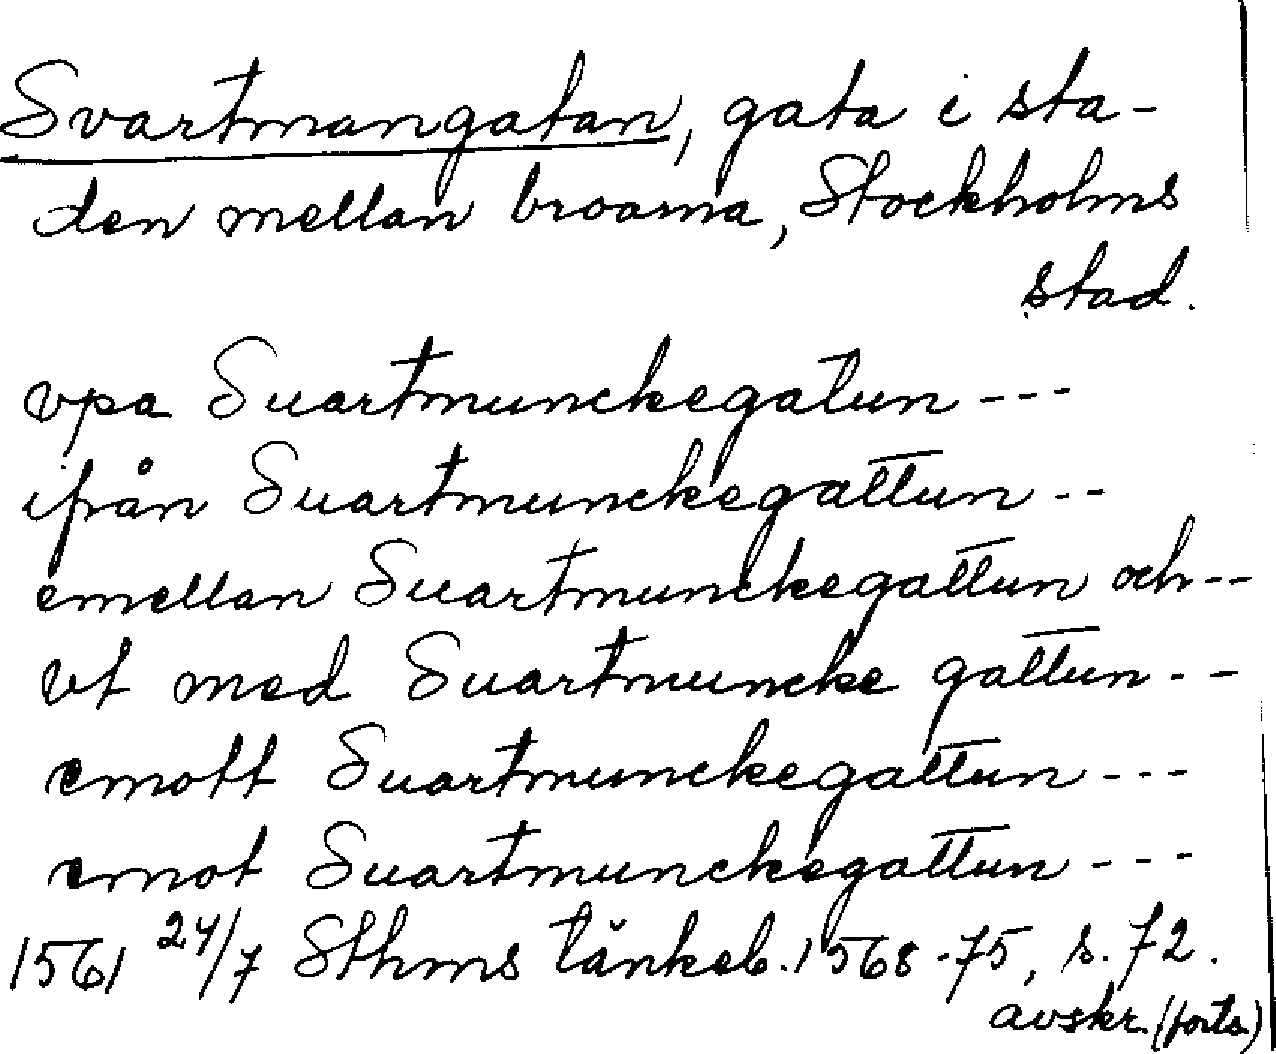 Svartmangatan, gata i sta-
den mellan broarna, Stockholms
stad.
vpa Suartmunckegatun ---
ifrån Suartmunckegattun --
emellan Suartmunckegattun och --
vt med Suartmuncke gattun --
emott Suartmunckegattun ---
emot Suartmunckegattun ---
1561 24/7 Sthms tänkeb. 1568-75, s. 72.
avskr. (forts.)